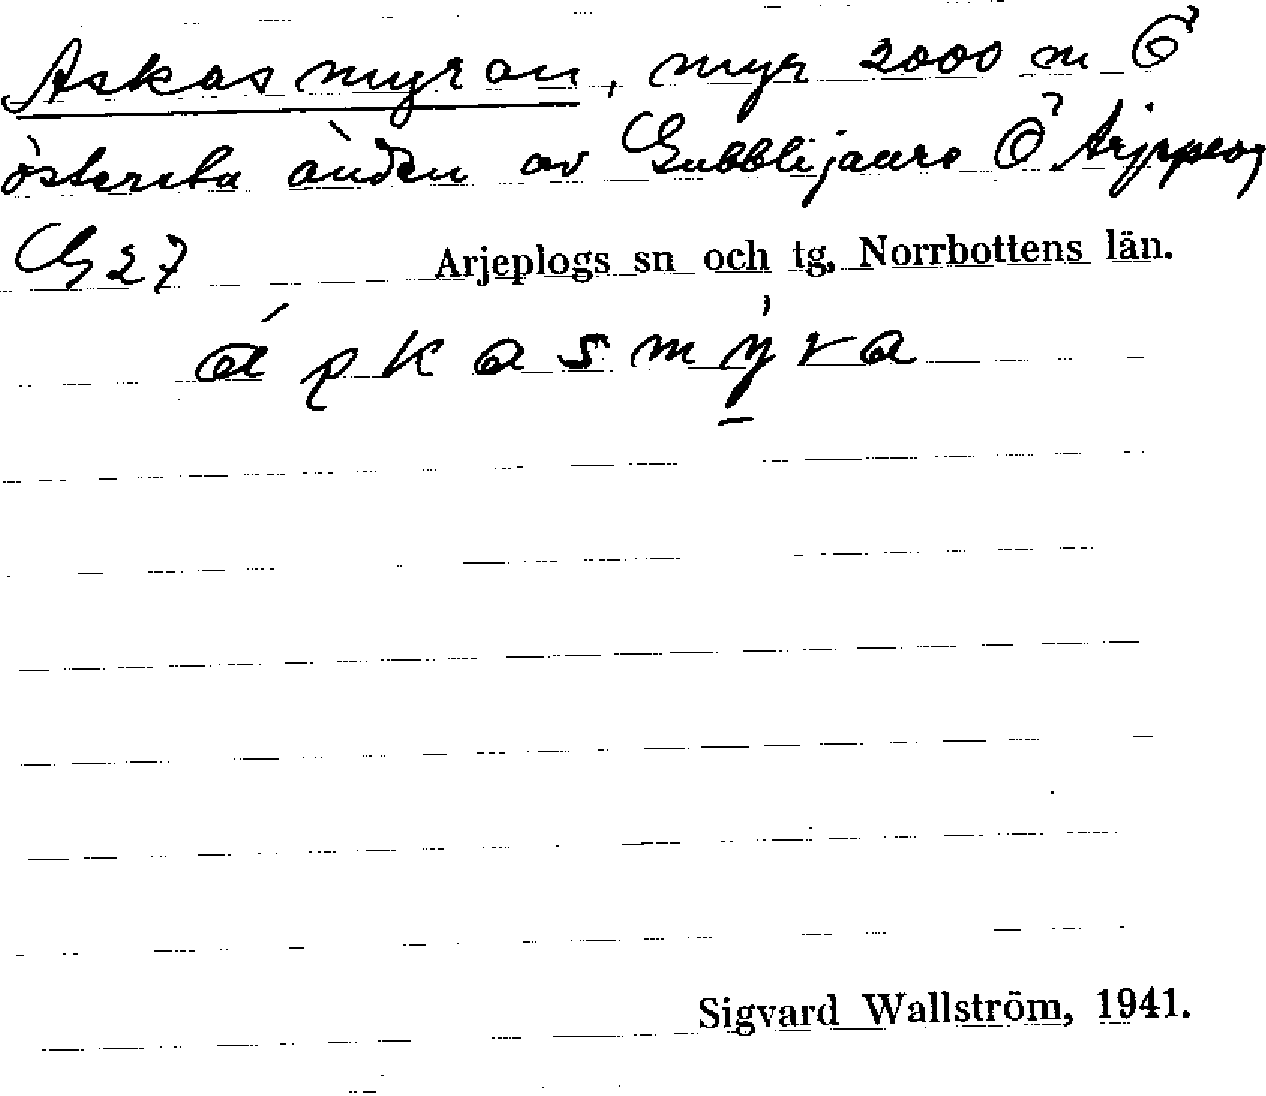 Askasmyran, myr 2000 m Ö
östersta änden av Gubblijaure Ö Arjeplog
G 27 Arjeplogs sn och tg, Norrbottens län.
Sigvard Wallström, 1941.